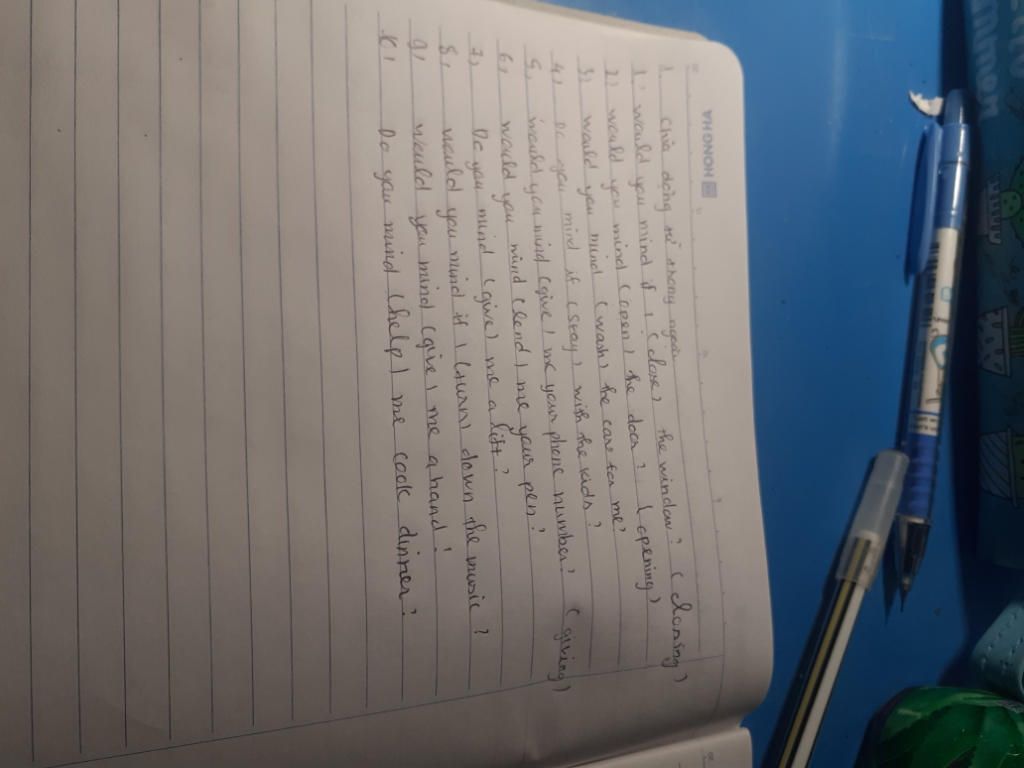 HONGHA
1. Chia dạng từ trong ngoặc
1, would you mind if i (close) the window? (closing)
2, would you mind (open) the door? (opening)
3, would you mind (wash) the car for me?
4, Do you mind if (stay) with the kids?
5, would you mind (give) me your phone number? (giving)
6, would you mind (lend) me your pen?
7, Do you mind (give) me a lift?
8, would you mind if i (turn) down the music?
9, would you mind (give) me a hand?
Do you mind (help) me cook dinner?